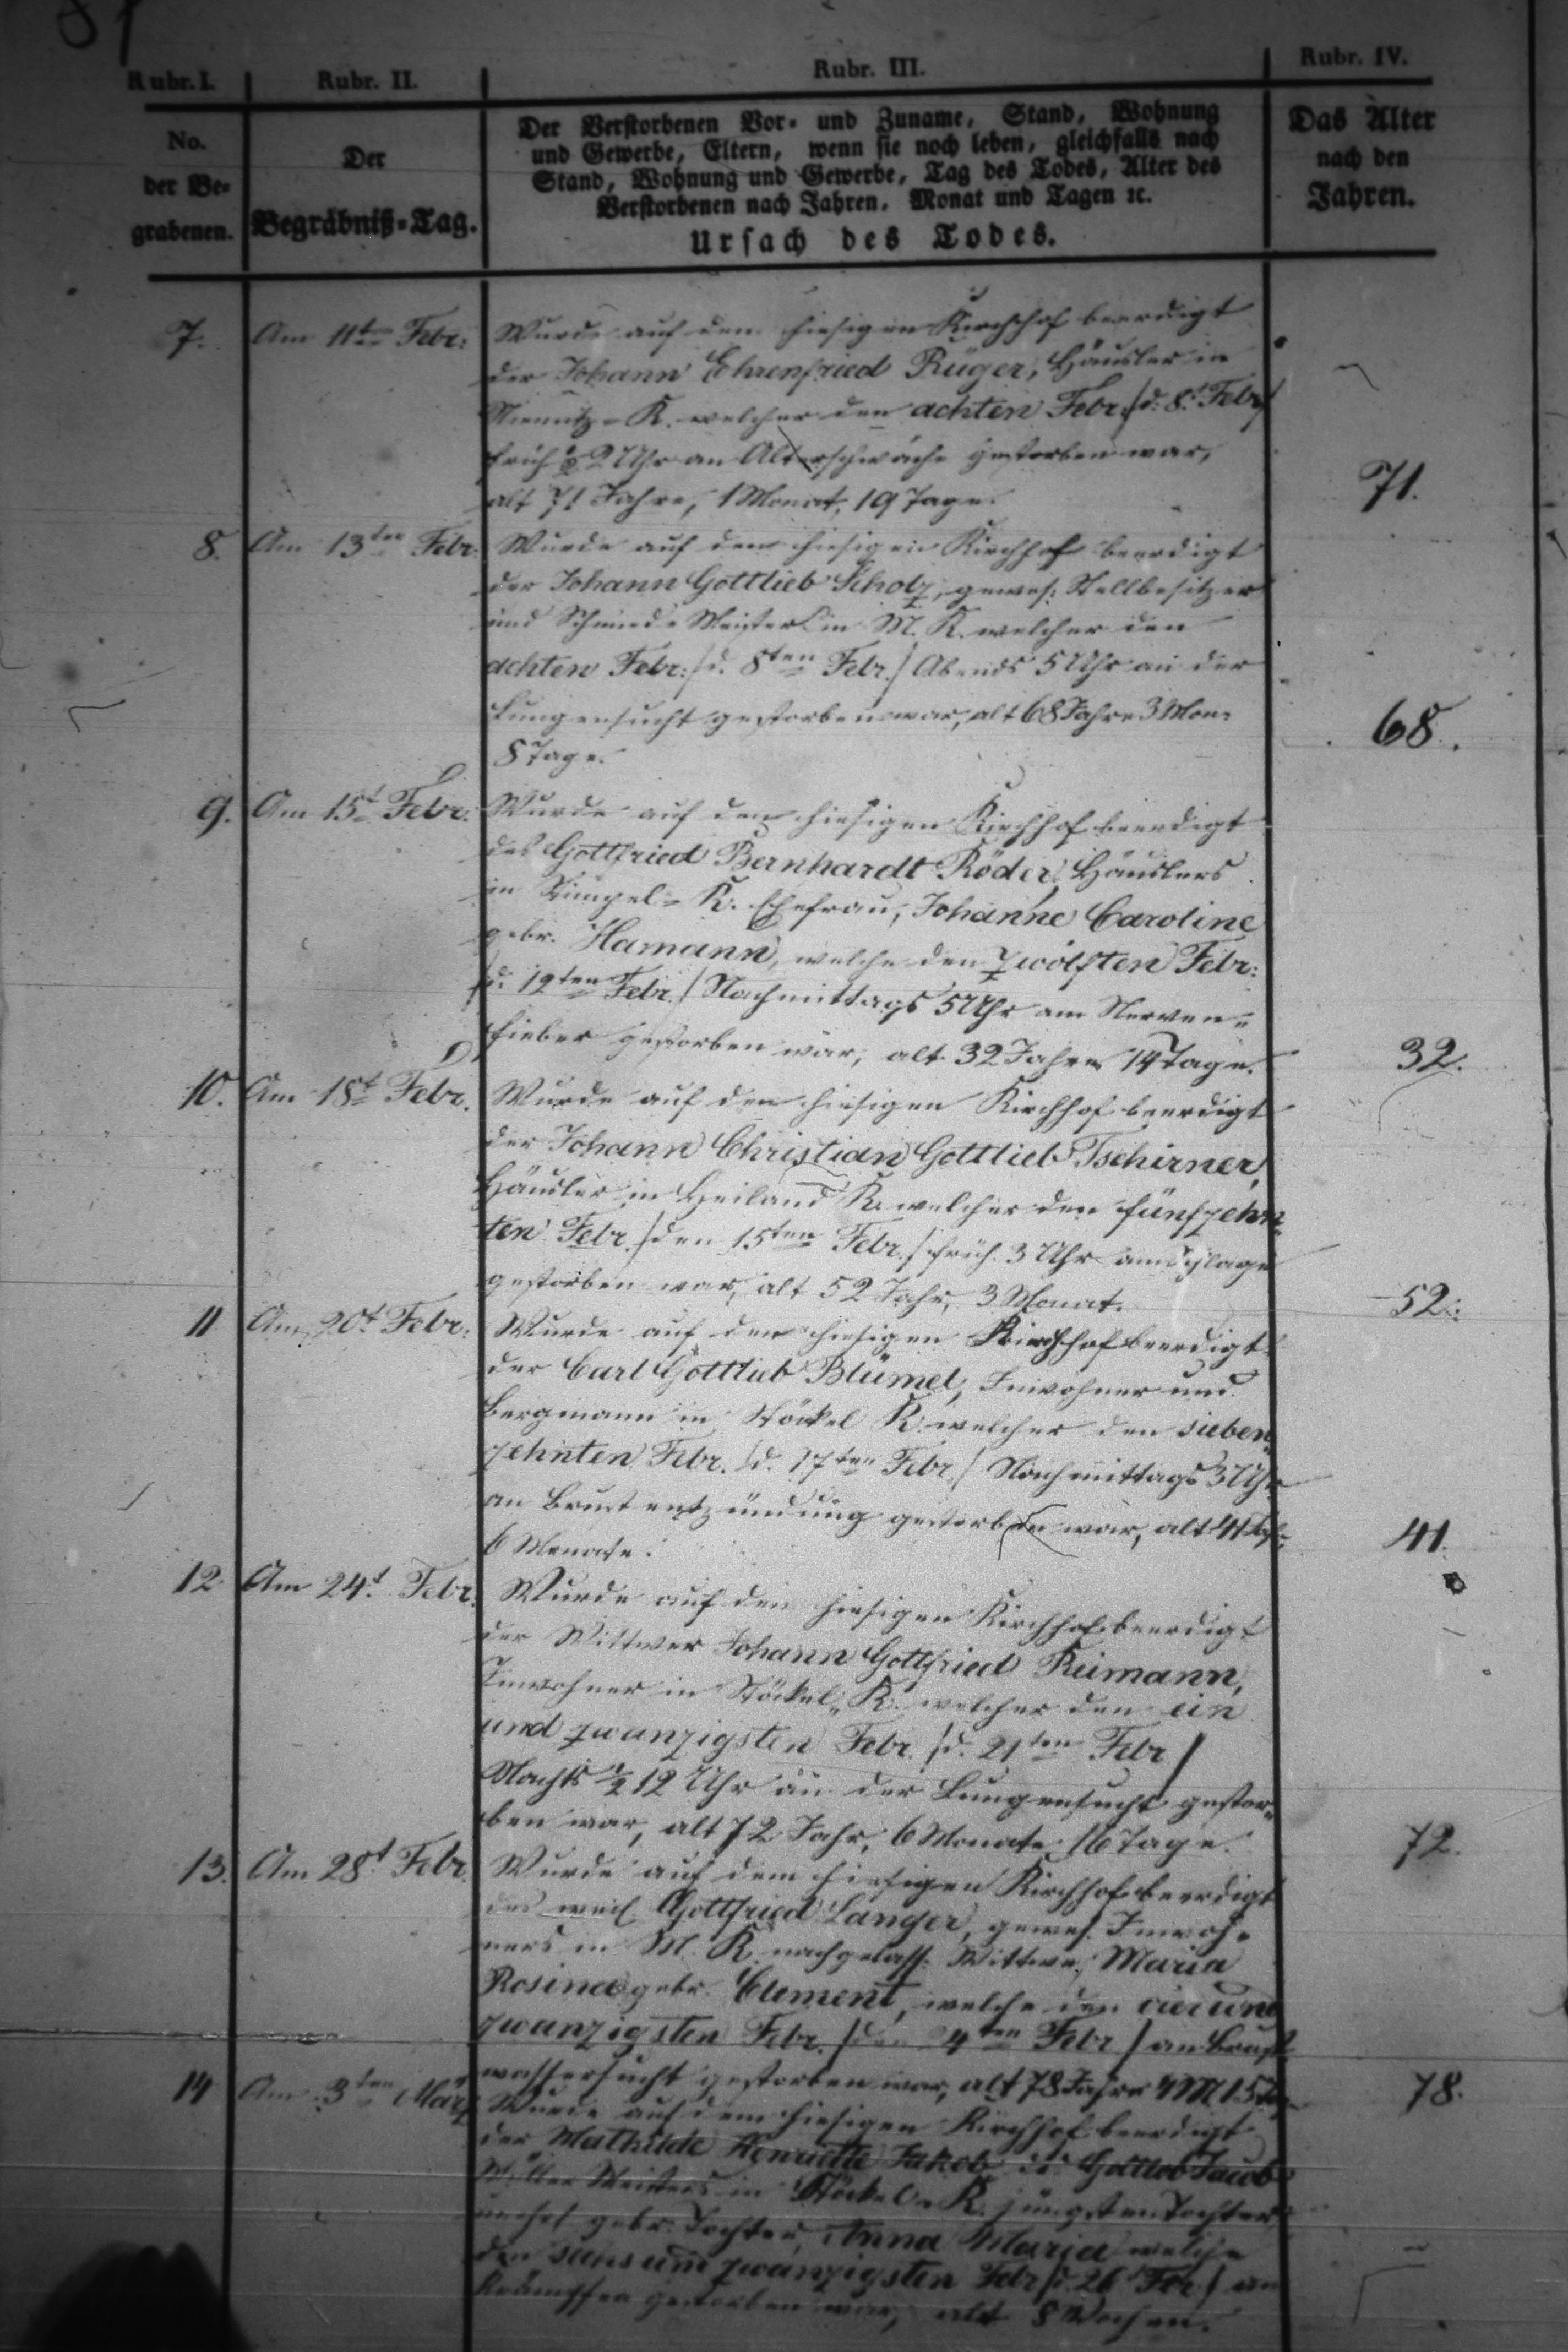 Rubr. I. Rubr. II. Rubr. III. Rubr. IV.
No.
der Be-
grabenen.
Der
Begräbniß-Tag.
Der Verstorbenen Vor- und Zuname, Stand, Wohnung
und Gewerbe, Eltern, wenn sie noch leben, gleichfalls nach
Stand, Wohnung und Gewerbe, Tag des Todes, Alter des
Verstorbenen nach Jahren, Monat und Tagen ꝛc.
Ursach des Todes.
Das Alter
nach den
Jahren.
7. Am 11ten Febr: Wurde auf dem hiesigen Kirchhof beerdigt
der Johann Ehrenfried Rüger, Häusler in
K. welcher den achten Febr. /d. 8t Febr/
früh 2 Uhr an Alterschwäche gestorben war,
alt 71 Jahre, 1 Monat, 19 Tage. 71.
8. Am 13ten Febr. Wurde auf dem hiesigen Kirchhof beerdigt
der Johann Gottlieb Scholz, gewes: Stellbesitzer
und Schmied-Meister in M. K. welcher den
achten Febr: /d. 8ten Febr./ Abends 5 Uhr an der
Lungensucht gestorben war, alt 68 Jahre 3 Mon:
8 Tage. 68.
9. Am 15t Febr. Wurde auf dem hiesigen Kirchhof beerdigt
des Gottfried Bernhardt Röder, Häuslers
in K. Ehefrau, Johanne Caroline
gebr. Hamann, welche den zwölften Febr:
/d. 12ten Febr./ Nachmittags 5 Uhr am Nerven-
fieber gestorben war, alt 32 Jahre 14 Tage. 32.
10. Am 18t Febr. Wurde auf dem hiesigen Kirchhof beerdigt
der Johann Christian Gottlieb Tschirner,
Häusler in Heiland K. welcher den fünfzehn-
ten Febr. /den 15ten Febr./ früh 3 Uhr am Schlage
gestorben war, alt 52 Jahr, 3 Monat. 52.
11 Am 20t Febr: Wurde auf dem hiesigen Kirchhof beerdigt
der Carl Gottlieb Blümel, Inwohner und
Bergmann in Stöckel K. welcher den sieben-
zehnten Febr. /d. 17ten Febr./ Nachmittags 3 Uhr
an Brustentzündung gestorben war, alt 41 Jahr,
6 Monate. 41.
12. Am 24t. Febr. Wurde auf dem hiesigen Kirchhof beerdigt
der Wittwer Johann Gottfried Reimann,
Inwohner in Stöckel-K. welcher den ein
und zwanzigsten Febr. /d. 21ten Febr/
Nachts ½ 12 Uhr an der Lungensucht gestor-
ben war, alt 72 Jahr, 6 Monate 16 Tage. 72.
13. Am 28t Febr. Wurde auf dem hiesigen Kirchhof beerdigt
des weil Gottfried Langer, gewes. Inwoh-
ners in M. K. nachgelass: Wittwe, Maria
Rosina gebr. Clement, welche den vierund
zwanzigsten Febr. /den 24ten Febr/ an Brust-
wassersucht gestorben war, alt 78 Jahre 4 M 15 78.
14 Am 3ten März Wurde auf dem hiesigen Kirchhof beerdigt
der Mathilde Henriette Jakob, Gottlob Jacob
Müller Meisters in Stöckel-K. jüngsten Tochter
unehel gebr. Tochter, Anna Maria welche
den sechs und zwanzigsten Febr /d. 26t Febr./ an
Krämpfen gestorben war, alt 8 Wochen.